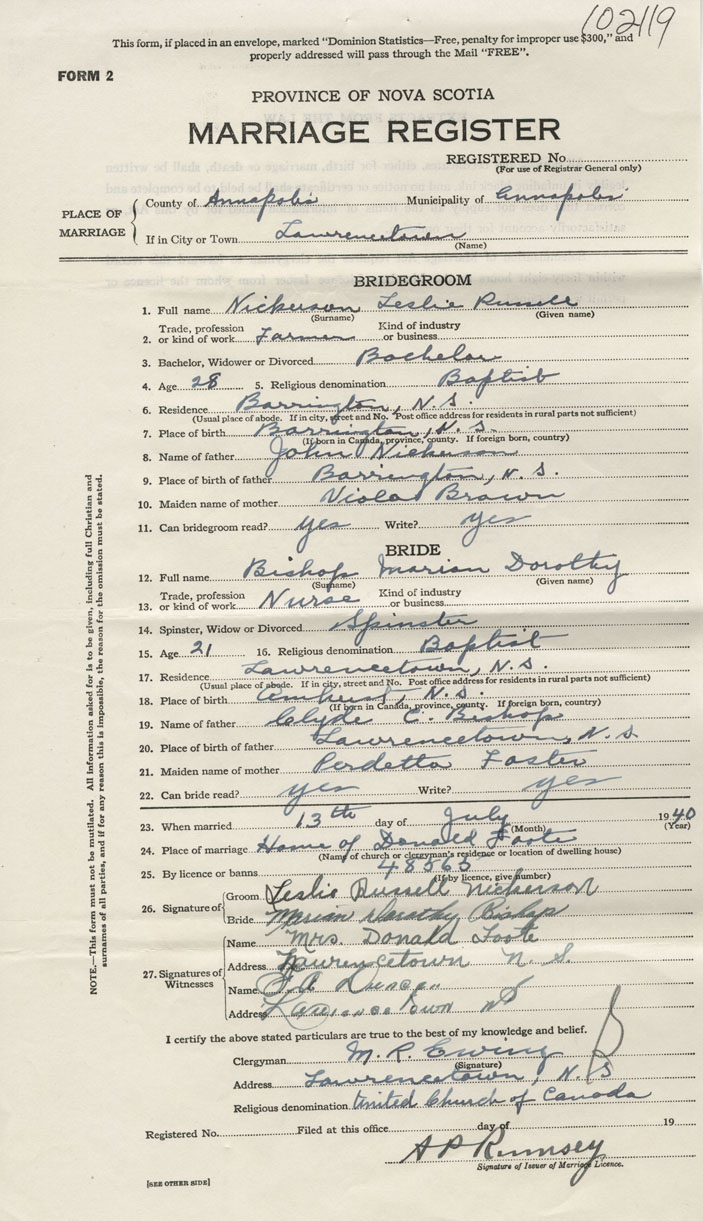 102119
This form, if placed in an envelope, marked "Dominion Statistics—Free, penalty for improper use $300," and
properly addressed will pass through the Mail "FREE".
FORM 2
PROVINCE OF NOVA SCOTIA
MARRIAGE REGISTER
REGISTERED No.
(For use of Registrar General only)
PLACE OF MARRIAGE
County of Annapolis Municipality of Annapolis
If in City or Town Lawrencetown
(Name)
BRIDEGROOM
1. Full name Nickerson Leslie Russell
(Surname) (Given name)
2. Trade, profession or kind of work Farmer Kind of industry or business
3. Bachelor, Widower or Divorced Bachelor
4. Age 28 5. Religious denomination Baptist
6. Residence Barrington, N.S.
(Usual place of abode. If in city, street and No. Post office address for residents in rural parts not sufficient)
7. Place of birth Barrington, N.S.
(If born in Canada, province, county. If foreign born, country)
8. Name of father John Nickerson
9. Place of birth of father Barrington, N.S.
10. Maiden name of mother Viola Brown
11. Can bridegroom read? yes Write? yes
BRIDE
12. Full name Bishop Marian Dorothy
(Surname) (Given name)
13. Trade, profession or kind of work Nurse Kind of industry or business
14. Spinster, Widow or Divorced Spinster
15. Age 21 16. Religious denomination Baptist
17. Residence Lawrencetown, N.S.
(Usual place of abode. If in city, street and No. Post office address for residents in rural parts not sufficient)
18. Place of birth Amherst, N.S.
(If born in Canada, province, county. If foreign born, country)
19. Name of father Clyde C. Bishop
20. Place of birth of father Lawrencetown, N.S.
21. Maiden name of mother Perdetta Foster
22. Can bride read? yes Write? yes
23. When married 13th day of July 1940
(Month) (Year)
24. Place of marriage Home of Donald Foote
(Name of church or clergyman's residence or location of dwelling house)
25. By licence or banns 48563
(If by licence, give number)
26. Signature of
Groom Leslie Russell Nickerson
Bride Marian Dorothy Bishop
27. Signatures of Witnesses
Name Mrs. Donald Foote
Address Lawrencetown N.S.
Name
Address Lawrencetown NS
I certify the above stated particulars are true to the best of my knowledge and belief.
Clergyman M. R. Ewing
(Signature)
Address Lawrencetown, N.S
Religious denomination United Church of Canada
Registered No. Filed at this office day of 19
A P Rumsey
Signature of Issuer of Marriage Licence.
[SEE OTHER SIDE]
NOTE.—This form must not be mutilated. All information asked for is to be given, including full Christian and
surnames of all parties, and if for any reason this is impossible, the reason for the omission must be stated.